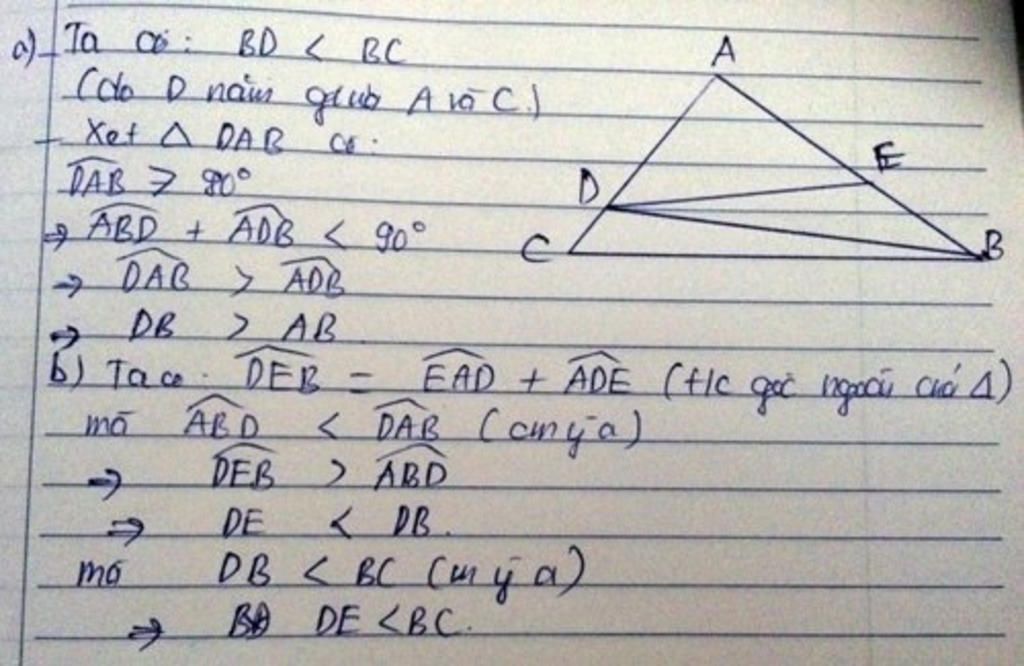 a) - Ta có: BD < BC
(do D nằm giữa A và C.)
- Xét Δ DAB có:
DAB ≥ 90°
⇒ ABD + ADB < 90°
⇒ DAB > ADB
⇒ DB > AB
b) Ta có: DEB = EAD + ADE (t/c góc ngoài của Δ)
mà ABD < DAB (cm ý a)
⇒ DEB > ABD
⇒ DE < DB.
mà DB < BC (cm ý a)
⇒ DE < BC.
A
E
D
C
B